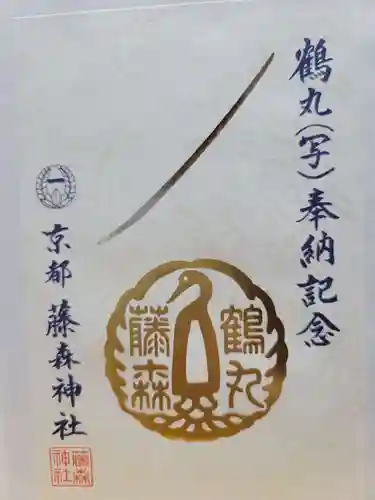 鶴丸(写)奉納記念
鶴丸
藤森
一
京都 藤森神社
藤森
神社